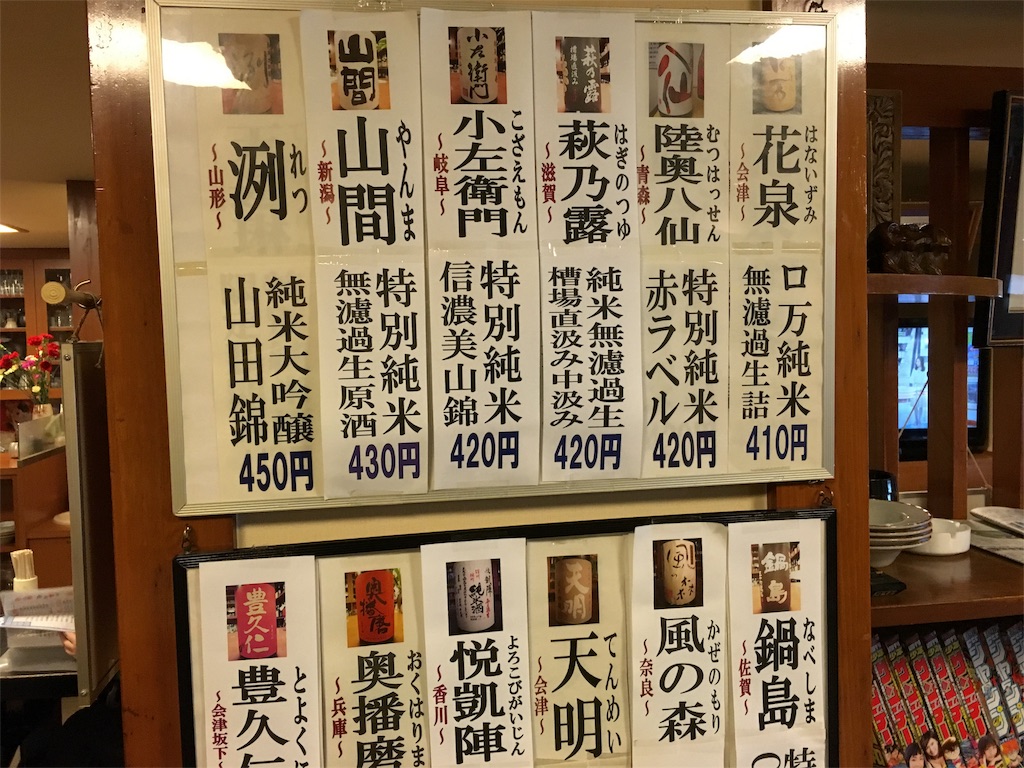 花泉
はないずみ
～会津～
ロ万純米
無濾過生詰
410円
八仙
陸奥八仙
むつはっせん
～青森～
特別純米
赤ラベル
420円
萩乃露
槽場直汲み
萩乃露
はぎのつゆ
～滋賀～
純米無濾過生
槽場直汲み中汲み
420円
小左衛門
小左衛門
こざえもん
～岐阜～
特別純米
信濃美山錦
420円
山間
山間
やんま
～新潟～
特別純米
無濾過生原酒
430円
洌
洌
れつ
～山形～
純米大吟醸
山田錦
450円
鍋島
鍋島
なべしま
～佐賀～
特
風の森
風の森
かぜのもり
～奈良～
天明
天明
てんめい
～会津～
純米酒
悦凱陣
よろこびがいじん
～香川～
奥播磨
奥播磨
おくはりま
～兵庫～
豊久仁
豊久仁
とよくに
～会津坂下～